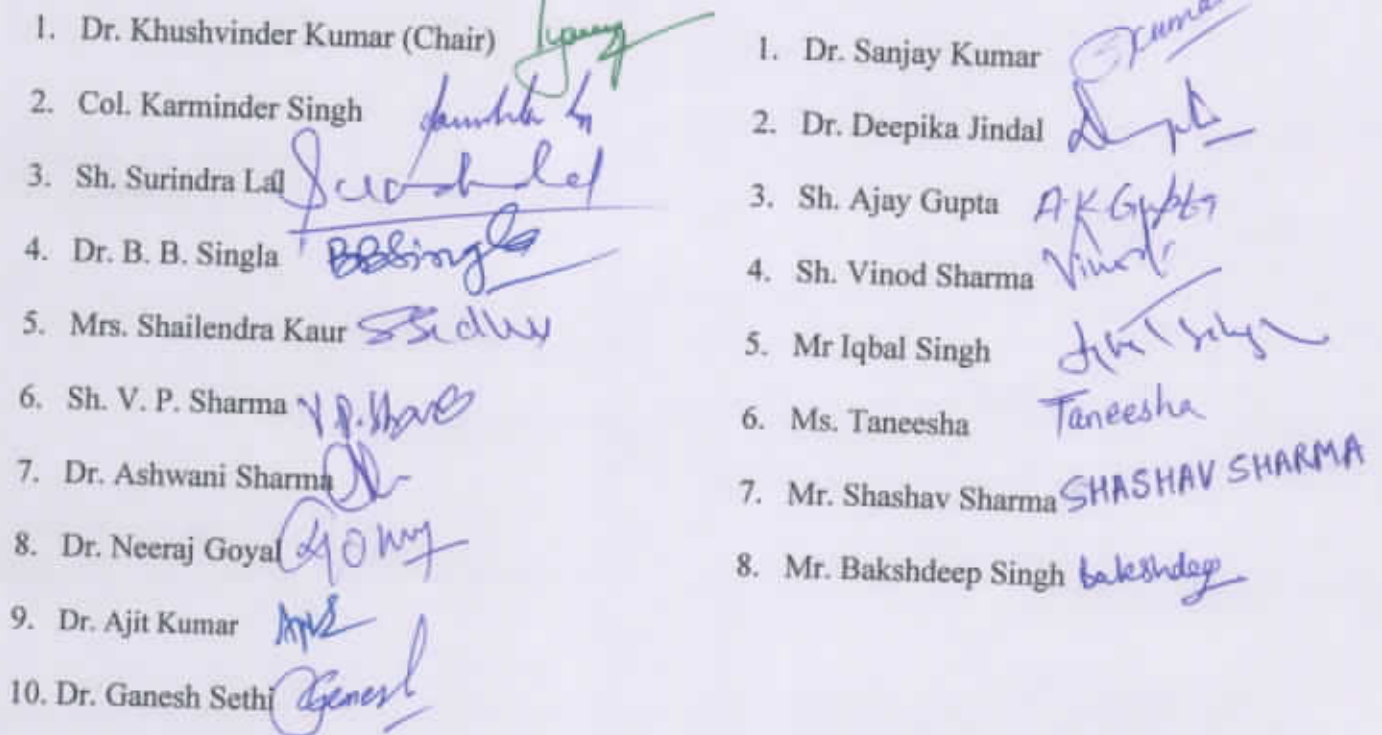 1. Dr. Khushvinder Kumar (Chair)
2. Col. Karminder Singh
3. Sh. Surindra Lal
4. Dr. B. B. Singla BBSingla
5. Mrs. Shailendra Kaur SSidhu
6. Sh. V. P. Sharma V.P. Sharma
7. Dr. Ashwani Sharma
8. Dr. Neeraj Goyal
9. Dr. Ajit Kumar
10. Dr. Ganesh Sethi Ganesh
1. Dr. Sanjay Kumar Kumar
2. Dr. Deepika Jindal
3. Sh. Ajay Gupta A.K Gupta
4. Sh. Vinod Sharma Vinod
5. Mr Iqbal Singh
6. Ms. Taneesha Taneesha
7. Mr. Shashav Sharma SHASHAV SHARMA
8. Mr. Bakshdeep Singh bakshdeep